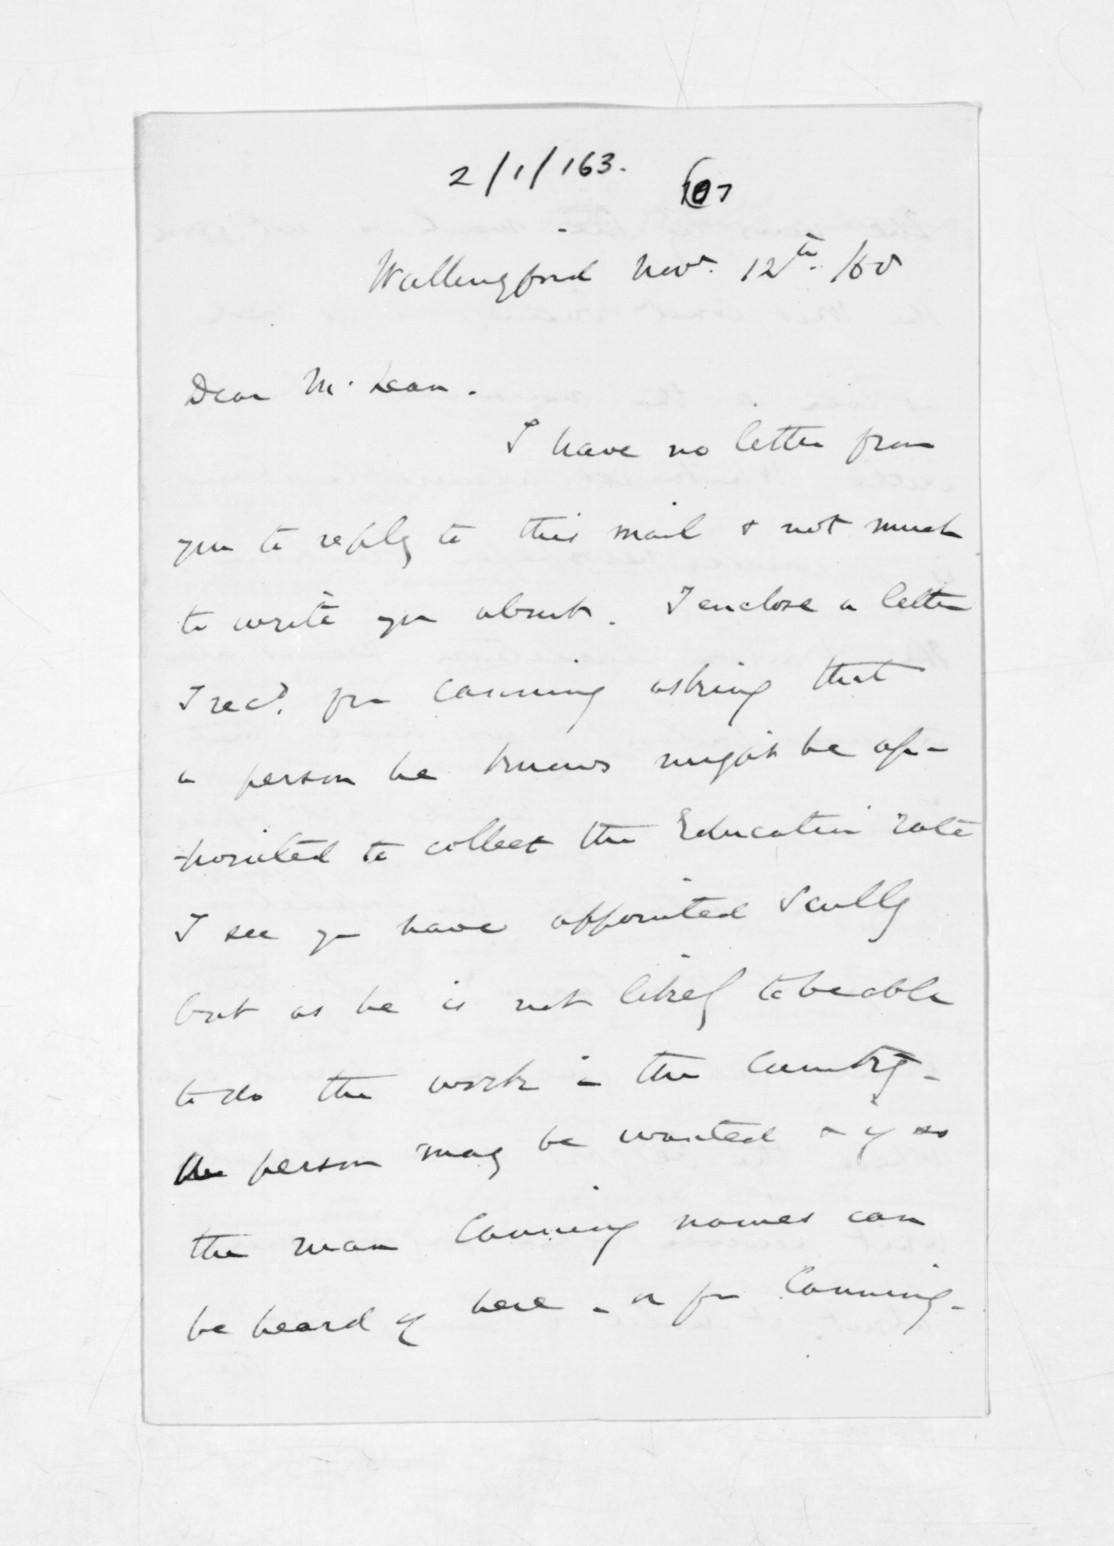 2/1/163.
107
Wallingford Novr. 12th. /68
Dear McLean.
I have no letter from
you to reply to this mail & not much
to write you about. I enclose a letter
I recd. fm Canning asking that
a person he knows might be ap-
-pointed to collect the Education rate
I see you have appointed Scully
but as he is not likely to be able
to do the work in the Country -
the person may be wanted & if so
the man Canning names can
be heard of here - or fm Canning -